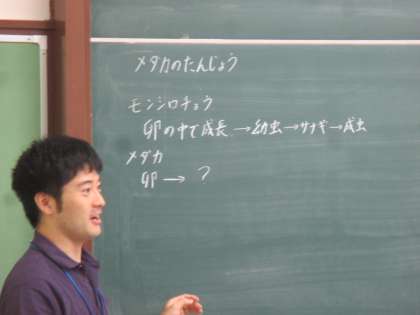 メダカのたんじょう
モンシロチョウ
卵の中で成長→幼虫→サナギ→成虫
メダカ
卵→?